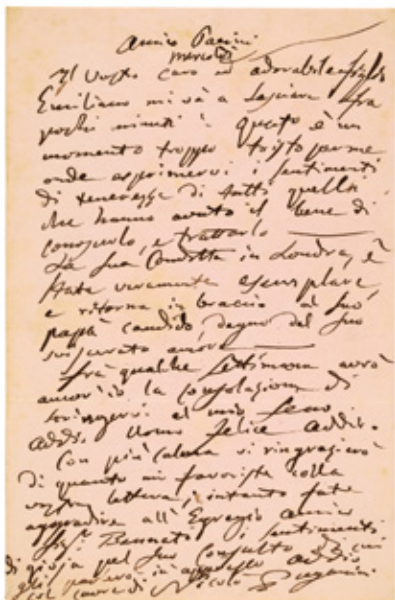 Amico Pacini
mercoldì
Il vostro caro ed adorabile figlio
Emiliano mi và a lasciare fra
pochi minuti: questo è un
momento troppo tristo per me
onde esprimervi i sentimenti
di tenerezza di tutti quelli
che hanno avuto il bene di
conoscerlo, e trattarlo
La sua Condotta in Londra, è
stata veramente esemplare,
e ritorna in braccio al suo
papà candido, degno del suo
sviscerato amore
Frà qualche settimana avrò
anch'io la consolazione di
stringervi al mio seno.
Addio. Uomo felice addio.
Con più calma vi ringrazierò
di quanto mi favoriste colla
vostra lettera; intanto fate
aggradire all' Egregio amico
Sigr. i sentimenti
di gioja pel suo consulto di cui
addio
Nicolò Paganini